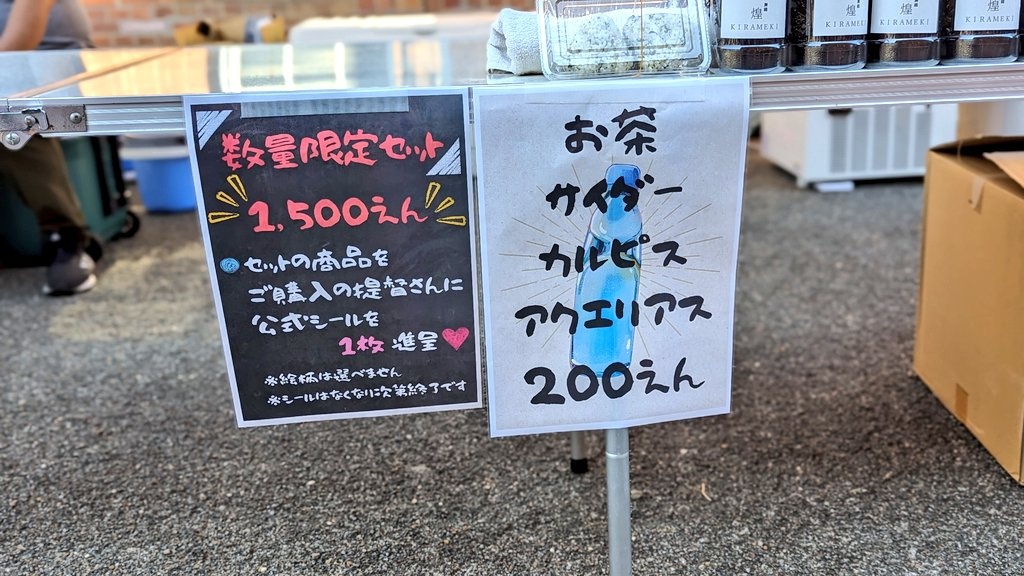 数量限定セット
1,500えん
セットの商品を
ご購入の提督さんに
公式シールを
1枚進呈
※絵柄は選べません
※シールはなくなり次第終了です
お茶
サイダー
カルピス
アクエリアス
200えん
煌
KIRAMEKI
煌
KIRAMEKI
煌
KIRAMEKI
煌
KIRAMEKI